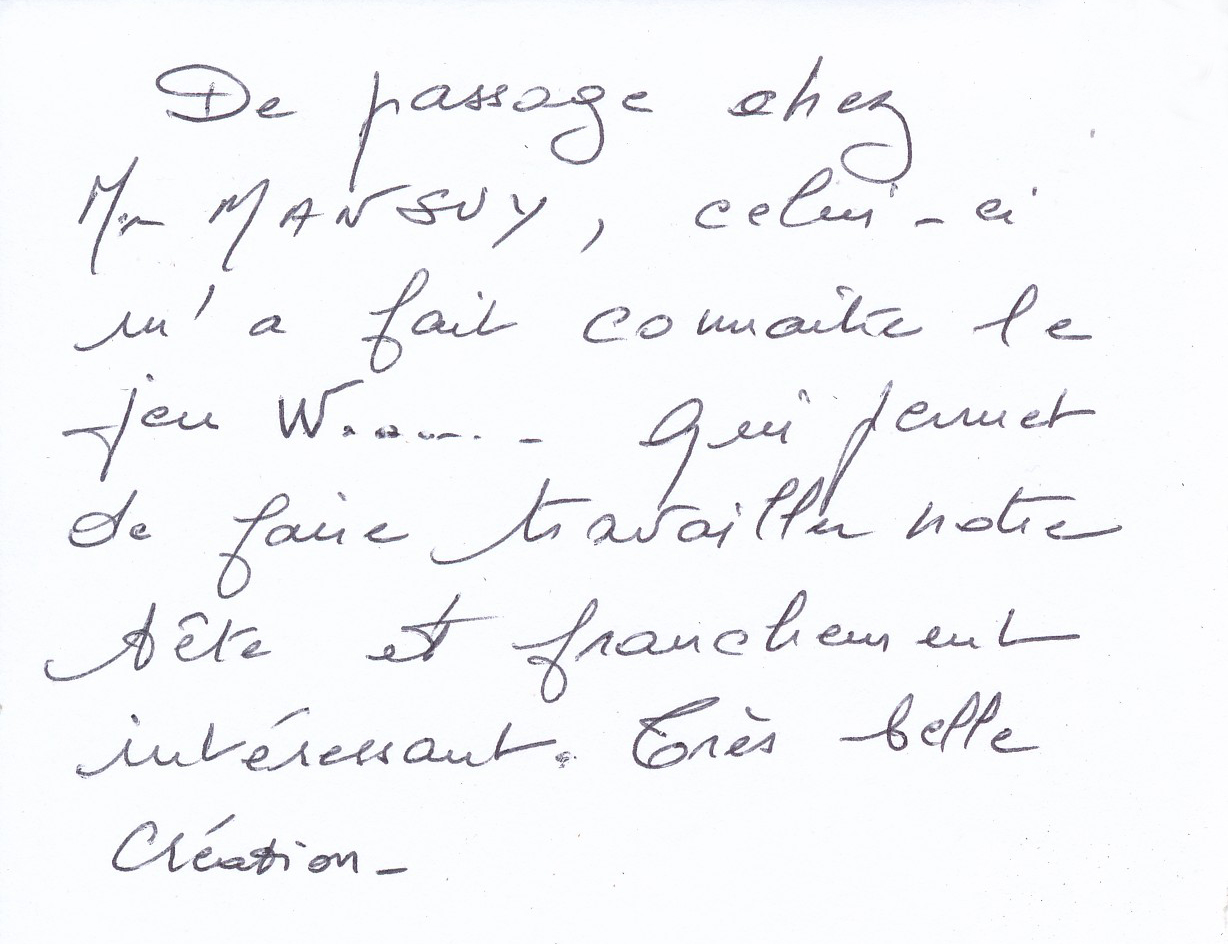 De passage chez
Mr MANSUY, celui-ci
m'a fait connaître le
jeu W....... qui permet
de faire travailler notre
tête et franchement
intéressant. Très belle
Création -